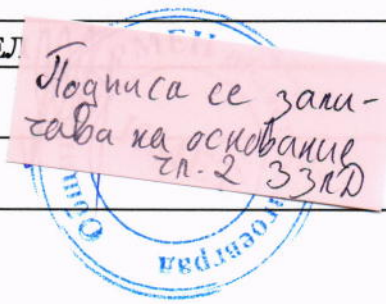 ЕЛ
Подписа се запи-
чава на основание
чл. 2 ЗЗЛД